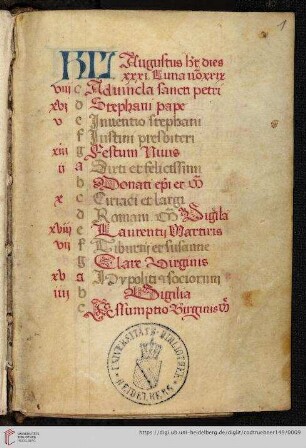 1
KL Augustus hꝫ dies
xxxi Luna vᵒ xxix
viii c Advincla sancti petri
xvi d Stephani pape
v e Inventio stephani
f Justini presbiteri
xiii g Festum Nivis
ii a Sixti et felicissimi
b Donati epi et m̄
x c Ciriaci et largi
d Romani m̄ Vigilia
xviii e Laurentii Martiris
vii f Tiburtii et susanne
g Clare Virginis
xv a Ypoliti & sociorum
iiii b Vigilia
c Assumptio Virginis m̄
UNIVERSITÄTS-BIBLIOTHEK HEIDELBERG
https://digi.ub.uni-heidelberg.de/diglit/codtruebner149/0009